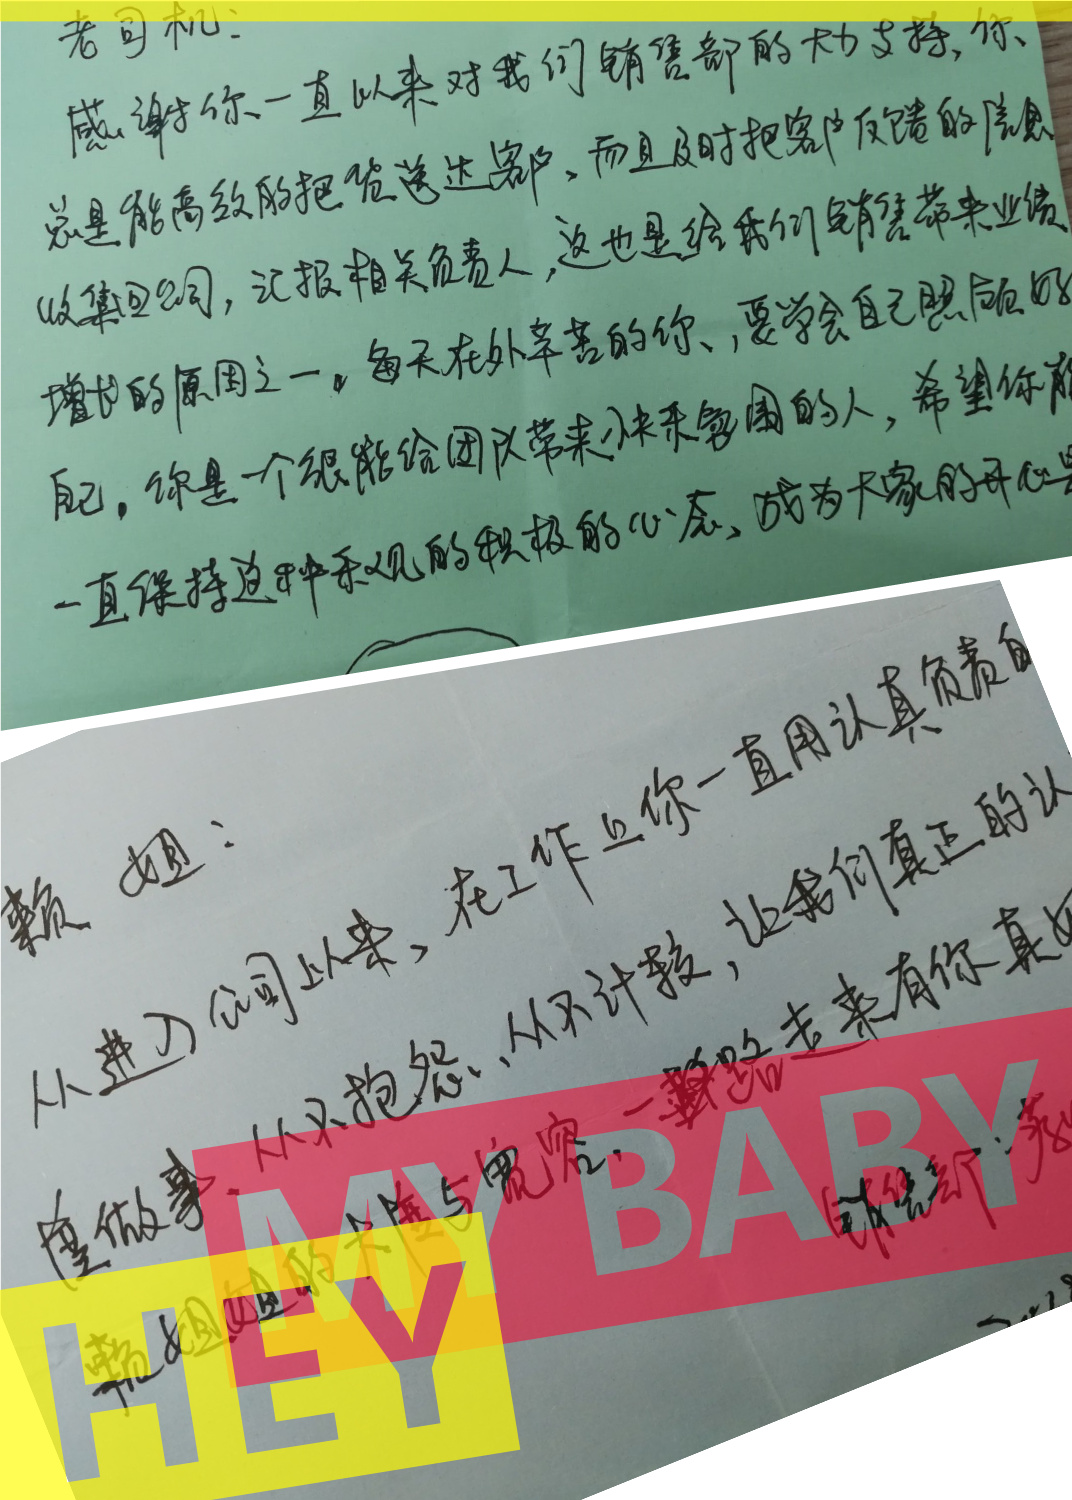 老司机:
感谢你一直以来对我们销售部的大力支持,你、
总是能高效的把货送达客户、而且及时把客户反馈的信息
收集回公司,汇报相关负责人,这也是给我们销售带来业绩
增长的原因之一。每天在外辛苦的你、,要学会自己照顾好
自己。你是一个很能给团队带来快乐氛围的人,希望你能
一直保持这种乐观的积极的心态、成为大家的开心果
赖 姐:
从进入公司以来、在工作上你一直用认真负责的
度做事、从不抱怨、从不计较,让我们真正的认
赖姐姐的大度与宽容、一路走来有你真好
销售部:
MY BABY
HEY